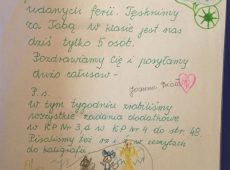 udanych ferii. Tęsknimy
za Tobą. W klasie jest nas
dziś tylko 5 osób.
Pozdrawiamy Cię i posyłamy
dużo całusów-
Joanna
P.s.
w tym tygodniu zrobiliśmy
wszystkie zadania dodatkowe
w KP Nr 3, a w KP Nr 4 do str. 48.
Pisaliśmy też w zeszytach
do kaligrafii